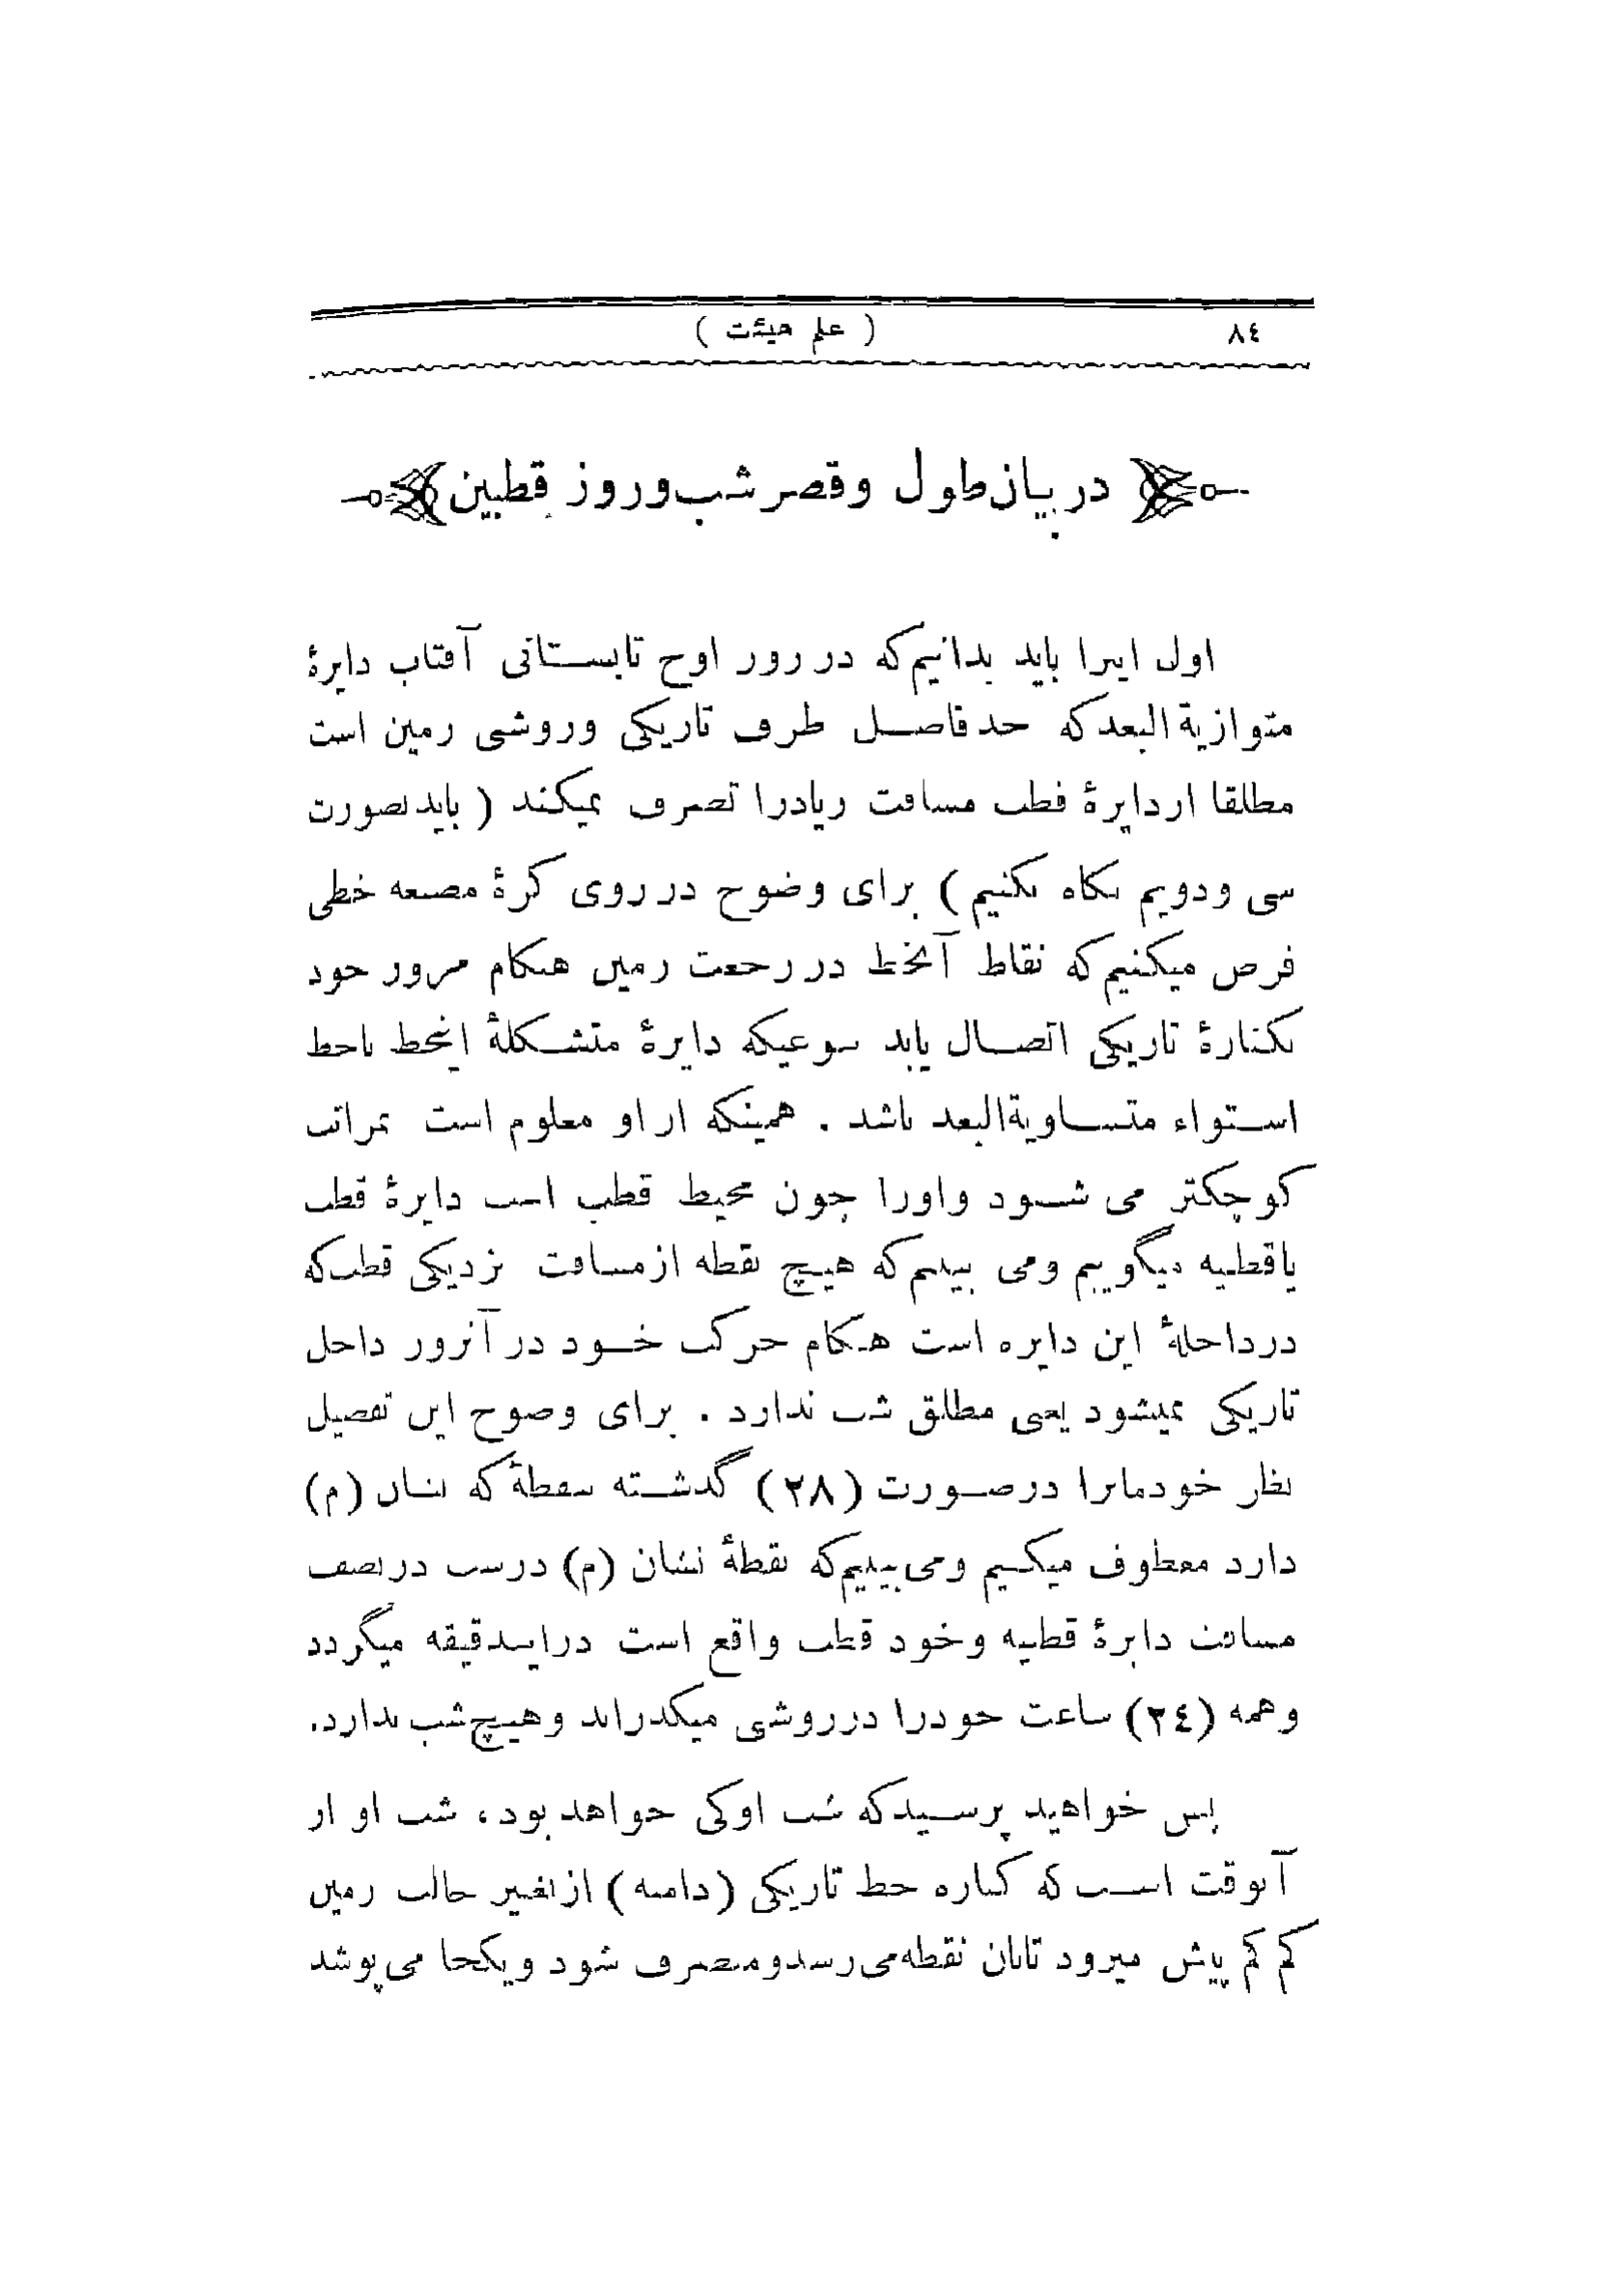 ٨٤ ( علم هيئت )
در بيان طول وقصر شب وروز قطبين
اول اينرا بايد بدانيم كه در روز اوج تابستانى آفتاب دايرۀ
متوازية البعد كه حد فاصل طرف تاريكى وروشنى زمين است
مطلقا از دايرۀ قطب مسافت زيادرا تصرف نميكند ( بايد بصورت
سى ودويم نگاه بكنيم ) براى وضوح در روى كرۀ مصنعه خطى
فرض ميكنيم كه نقاط آنخط در رجعت زمين هنگام مرور خود
بكنارۀ تاريكى اتصال يابد بنوعيكه دايرۀ متشكلۀ اينخط باخط
استواء متساوية البعد باشد . همينكه از او معلوم است بمراتب
كوچكتر مى شود واورا چون محيط قطب است دايرۀ قطب
يا قطبيه ميگوييم ومى بينيم كه هيچ نقطه از مسافت نزديكى قطب كه
در داخلۀ اين دايره است هنگام حركت خود در آنروز داخل
تاريكى نميشود يعنى مطلق شب ندارد . براى وضوح اين تفصيل
نظر خودمانرا در صورت (٢٨) گذشته بنقطۀ كه نشان (م)
دارد معطوف ميكنيم ومى بينيم كه نقطۀ نشان (م) درست در نصف
مسافت دايرۀ قطبيه وخود قطب واقع است در اينددقيقه ميگردد
وهمه (٢٤) ساعت خودرا در روشنى ميگذراند وهيچ شب ندارد.
پس خواهيد پرسيد كه شب او كى خواهد بود ، شب او از
آنوقت است كه كناره خط تاريكى (دامنه) از تغيير حالت زمين
كم كم پيش ميرود تابان نقطه مى رسد ومتصرف شود ويكجا مى پوشد